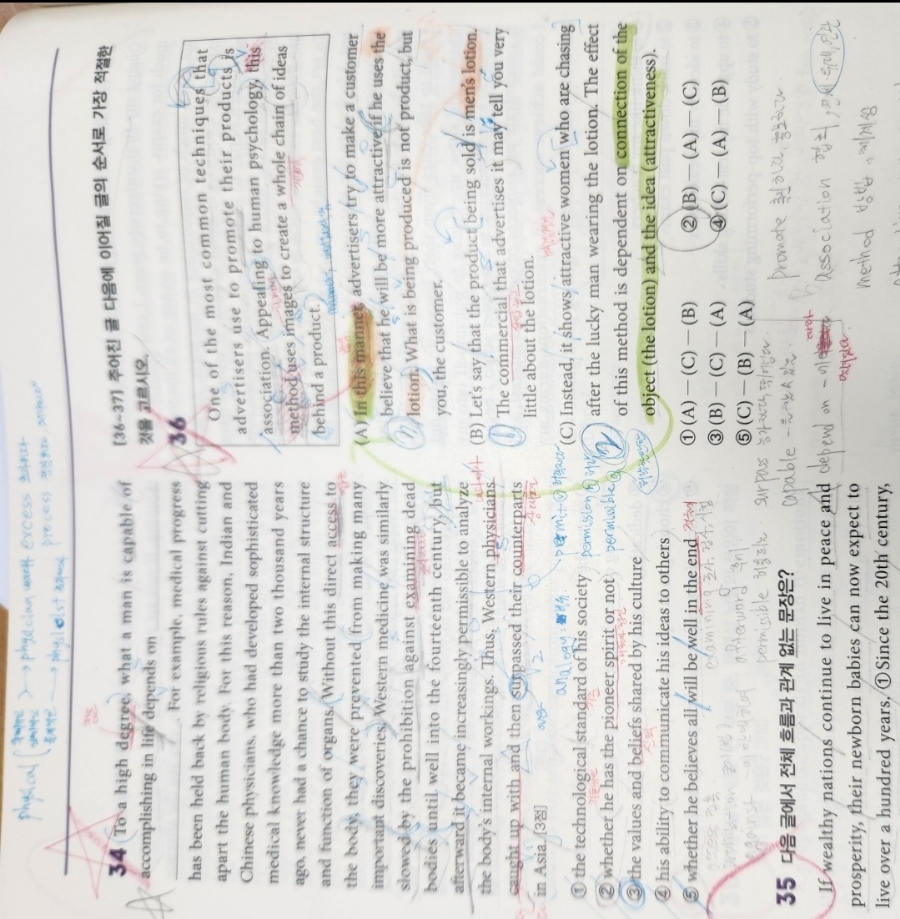 34 To a high degree, what a man is capable of
accomplishing in life depends on
. For example, medical progress
has been held back by religious rules against cutting
apart the human body. For this reason, Indian and
Chinese physicians, who had developed sophisticated
medical knowledge more than two thousand years
ago, never had a chance to study the internal structure
and function of organs. Without this direct access to
the body, they were prevented from making many
important discoveries. Western medicine was similarly
slowed by the prohibition against examining dead
bodies until well into the fourteenth century, but
afterward it became increasingly permissible to analyze
the body's internal workings. Thus, Western physicians
caught up with and then surpassed their counterparts
in Asia. [3점]
① the technological standard of his society
② whether he has the pioneer spirit or not
③ the values and beliefs shared by his culture
④ his ability to communicate his ideas to others
⑤ whether he believes all will be well in the end
35 다음 글에서 전체 흐름과 관계 없는 문장은?
If wealthy nations continue to live in peace and
prosperity, their newborn babies can now expect to
live over a hundred years. ① Since the 20th century,
[36~37] 주어진 글 다음에 이어질 글의 순서로 가장 적절한
것을 고르시오.
36
One of the most common techniques that
advertisers use to promote their products is
association. Appealing to human psychology, this
method uses images to create a whole chain of ideas
behind a product.
(A) In this manner, advertisers try to make a customer
believe that he will be more attractive if he uses the
lotion. What is being produced is not product, but
you, the customer.
(B) Let's say that the product being sold is men's lotion.
The commercial that advertises it may tell you very
little about the lotion.
(C) Instead, it shows attractive women who are chasing
after the lucky man wearing the lotion. The effect
of this method is dependent on connection of the
object (the lotion) and the idea (attractiveness).
① (A) – (C) – (B) ② (B) – (A) – (C)
③ (B) – (C) – (A) ④ (C) – (A) – (B)
⑤ (C) – (B) – (A)
physical
physician
excess
process
analogy
permission
permissible
surpass
capable
afterward
depend on
promote
association
method